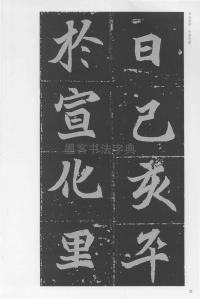 日己亥卒
於宣化里
墨客书法字典